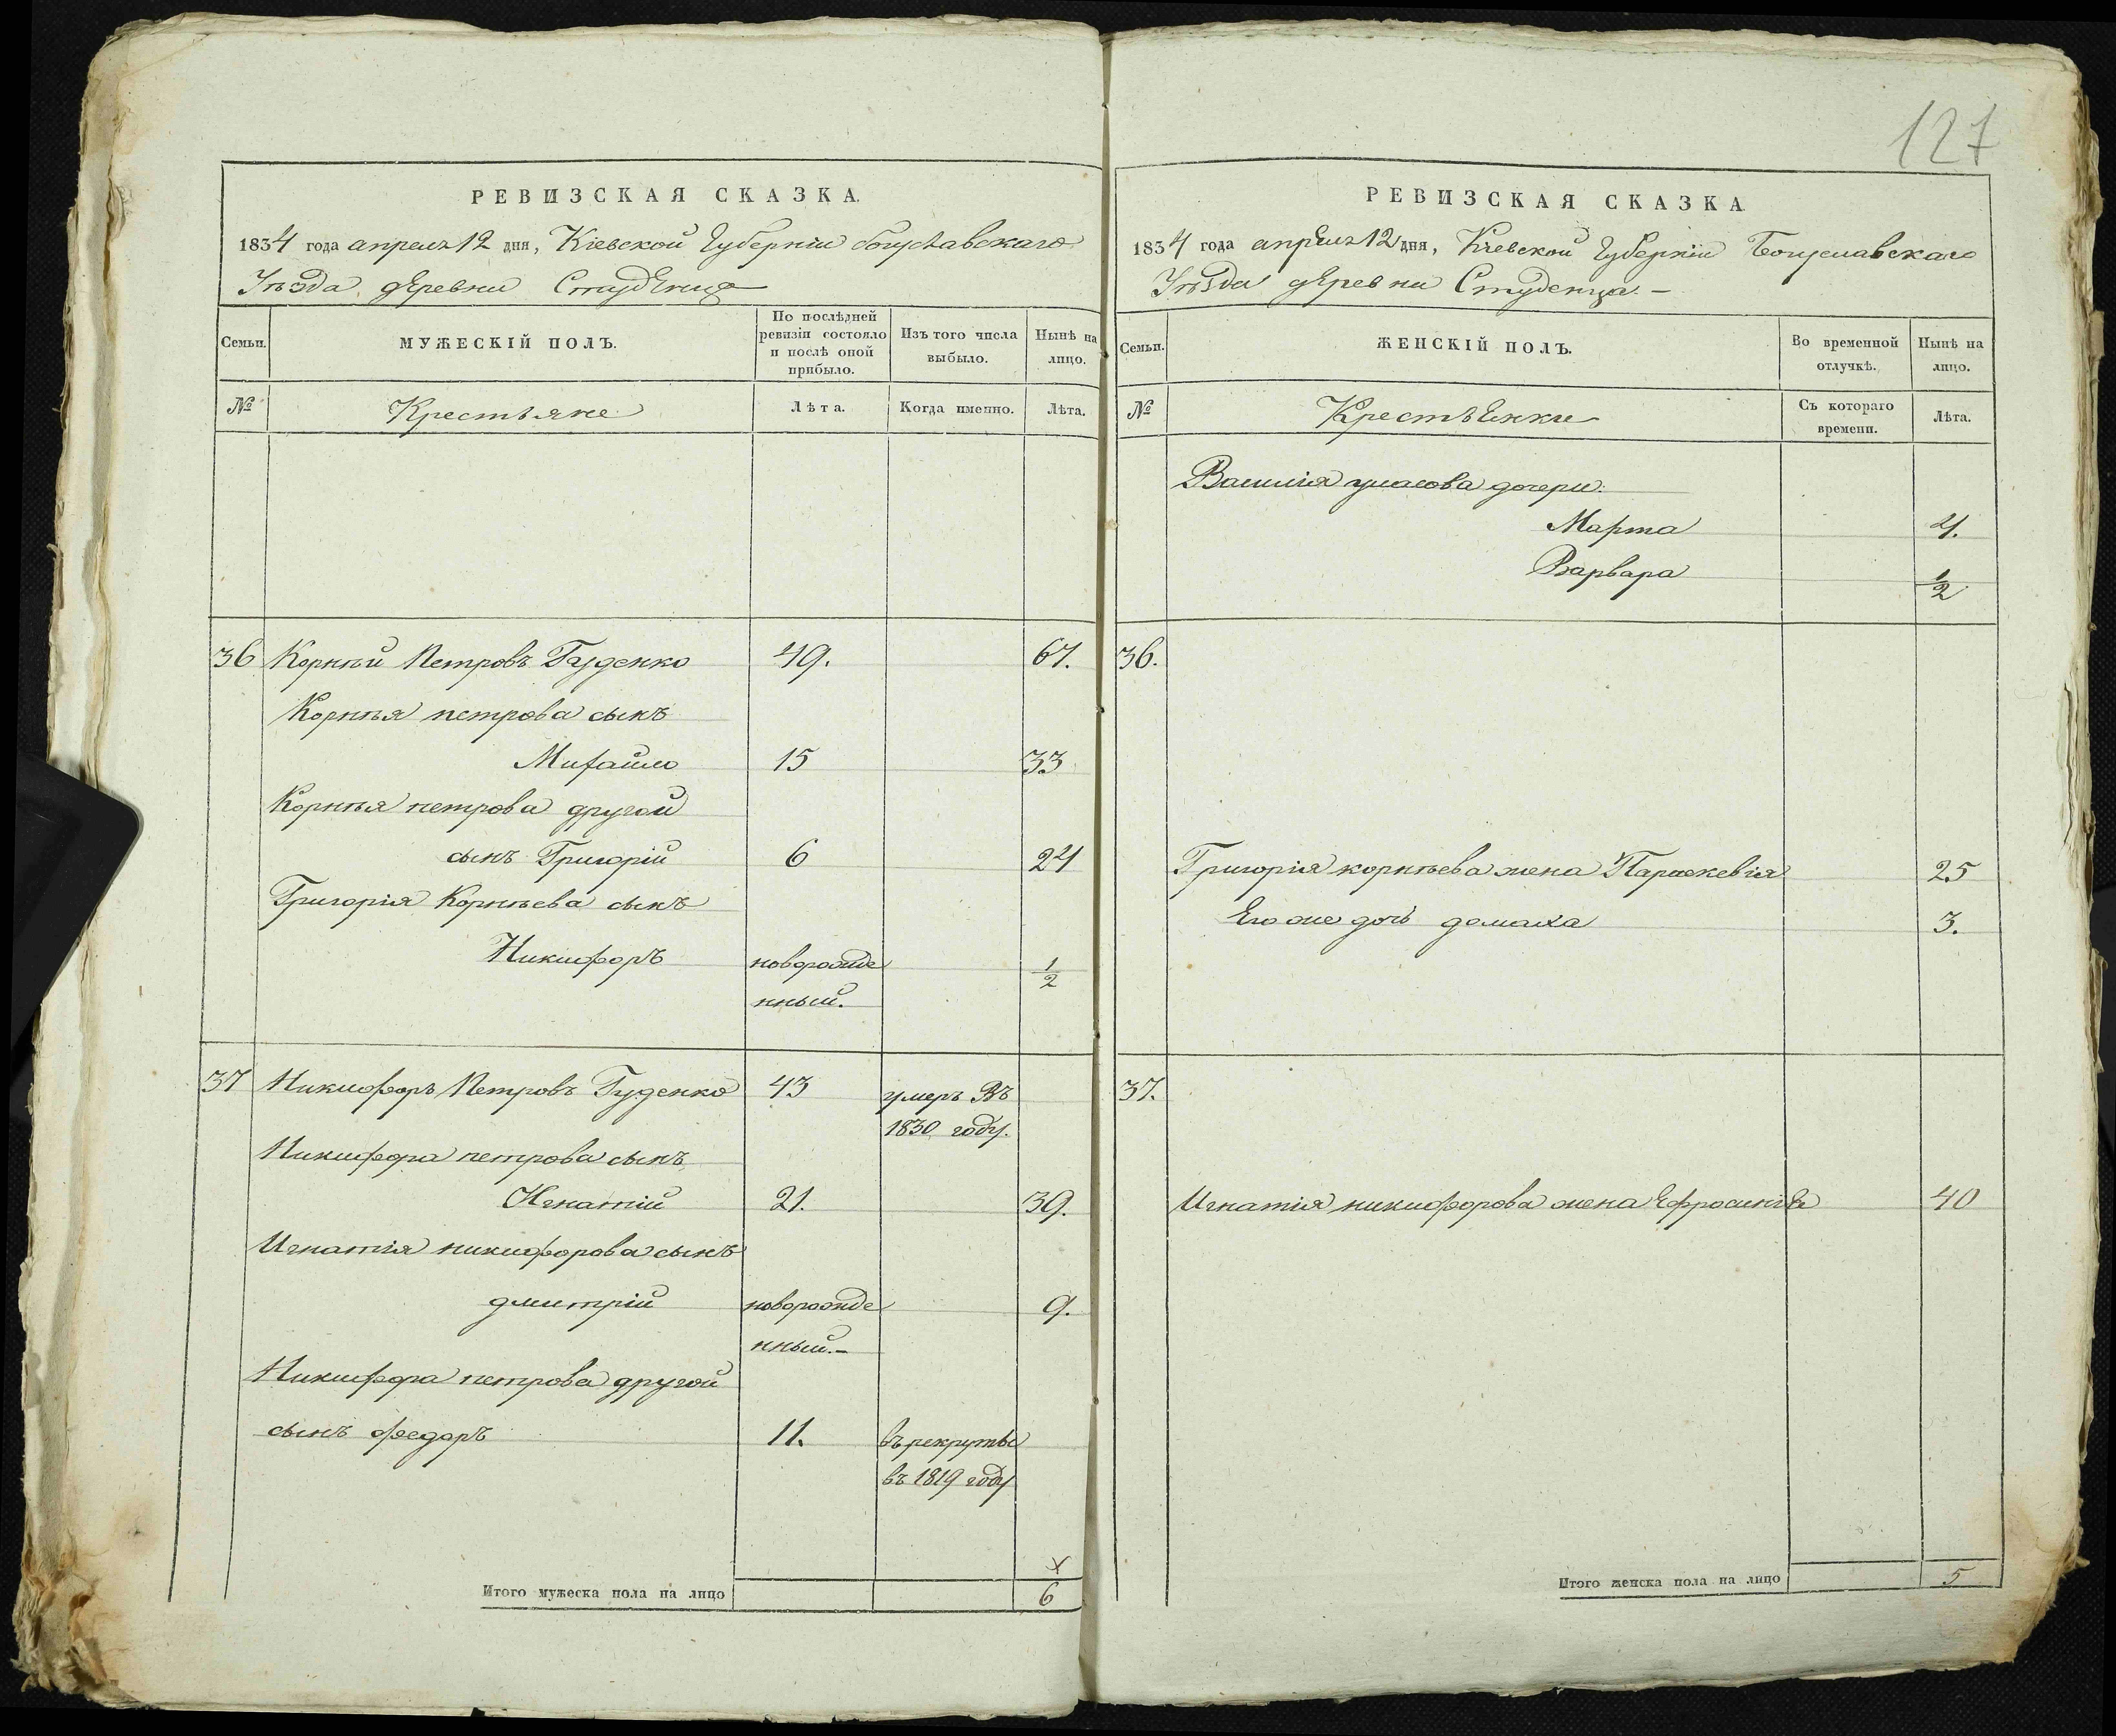 127
РЕВИЗСКАЯ СКАЗКА.
1834 года апреля 12 дня, Кіевской Губерніи богуславскаго
Уѣзда деревни Студенца
Семьи.
МУЖЕСКІЙ ПОЛЪ.
По послѣдней ревизіи состояло и послѣ оной прибыло.
Изъ того числа выбыло.
Нынѣ на лицо.
№
Крестьяне
Лѣта.
Когда именно.
Лѣта.
36 Корнѣй Петровъ Гуденко 49. 67.
Корнѣя петрова сынъ
Михайло 15 33
Корнѣя петрова другой
сынъ Григорій 6 24
Григорія Корнѣева сынъ
Никифоръ новорожде 1/2
нный.
37 Никифоръ Петровъ Гуденко 43 умеръ Въ
1830 году.
Никифора петрова сынъ
Игнатій 21. 39.
Игнатія никифорова сынъ
дмитрій новорожде 9.
нный.-
Никифора петрова другой
сынъ федоръ 11. въ рекруты
въ 1819 году
Итого мужеска пола на лицо 6
РЕВИЗСКАЯ СКАЗКА
1834 года апреля 12 дня, Кіевской Губерніи Богуславскаго
Уѣзда деревни Студенца.-
Семьи.
ЖЕНСКІЙ ПОЛЪ.
Во временной отлучкѣ.
Нынѣ на лицо.
№
Крестьенки
Съ котораго времени.
Лѣта.
Василія дочери.
Марта 4.
Варвара 1/2
36.
Григорія корнѣева жена Параскевія 25
Его же дочь домаха 3.
37.
Игнатія никифорова жена Ефросинія 40
Итого женска пола на лицо 5